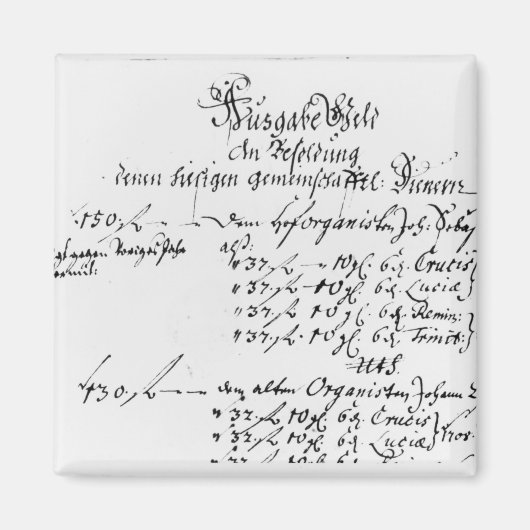 Ausgabe Geld
An Besoldung
denen hiesigen gemeinschafftl: Dienern
150. fl — — dem Hoforganisten Joh: Sebas
gegen voriges Jahr
alß:
" 37. fl — 10 gl. 6 d. Crucis
" 37. fl — 10 gl. 6 d. Luciæ
" 37. fl 10 gl. 6 d. Remin:
" 37. fl 10 gl. 6 d. Trinit:
uts.
130. fl — — dem alten Organisten Johann
" 32. fl 10 gl. 6 d. Crucis
" 32. fl 10 gl. 6 d. Luciæ